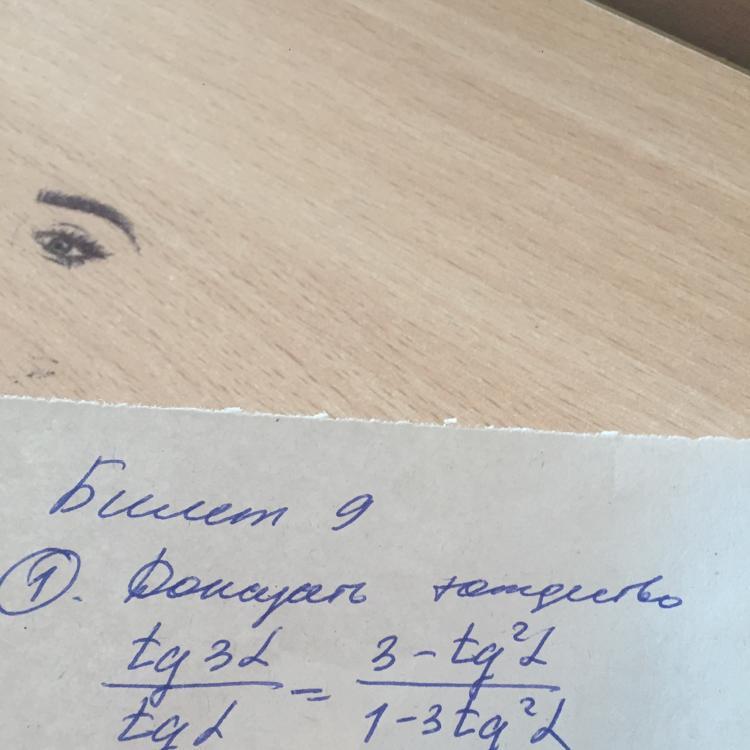 Билет 9
1. Доказать тождество
tg 3α / tg α = 3 - tg²α / 1 - 3tg²α